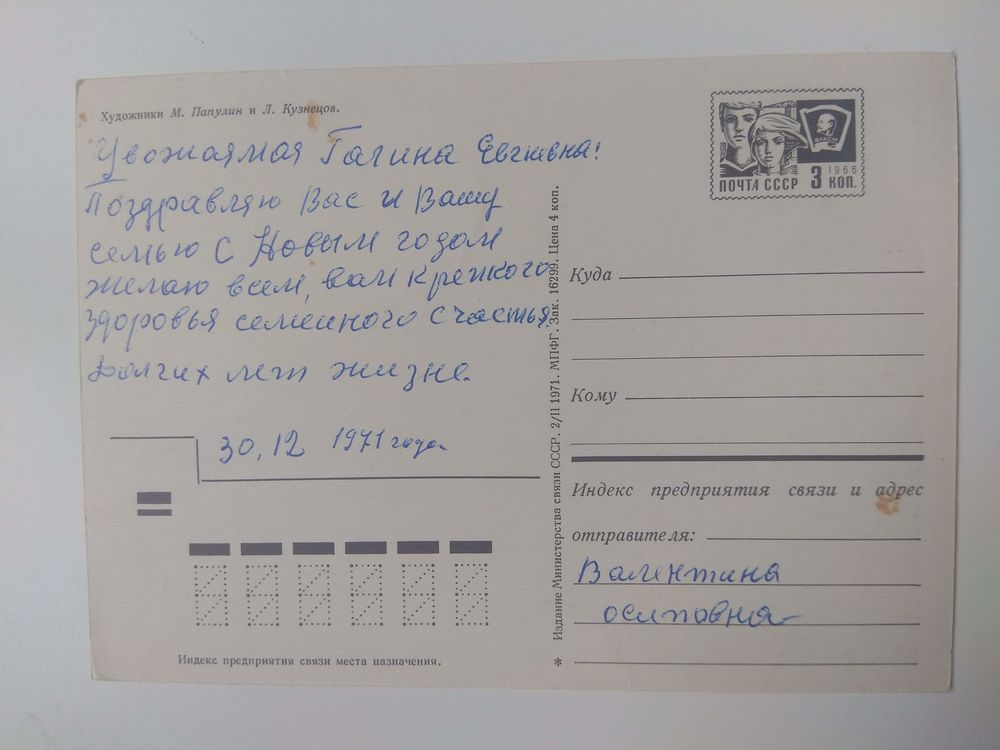 Художники М. Папулин и Л. Кузнецов.
Увожаямая Галина Евгневна!
Поздравляю Вас и Вашу
семью с Новым годом
желаю всем, вам крепкого
здоровья семейного счастья,
долгих лет жизне.
30,12 1971 года
ПОЧТА СССР 3 КОП.
1966
ВЛКСМ
Издание Министерства связи СССР. 2/II 1971. МПФГ. Зак. 16299. Цена 4 коп.
Куда
Кому
Индекс предприятия связи и адрес
отправителя:
Валентина
осиповна
*
Индекс предприятия связи места назначения.